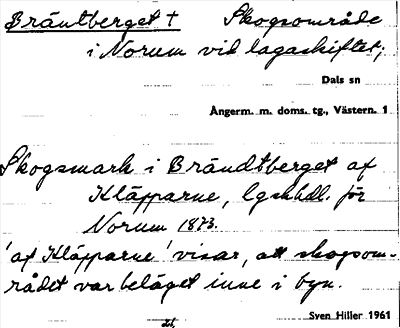 Bräntberget † Skogsområde
i Norum vid lagaskiftet;
Dals sn
Ångerm. m. doms. tg., Västern. 1
Skogsmark i Brändtberget af
Kläpparne, lgskhdl. för
Norum 1873.
'af Kläpparne' visar, att skogsom-
rådet var beläget inne i byn.
Sven Hiller 1961